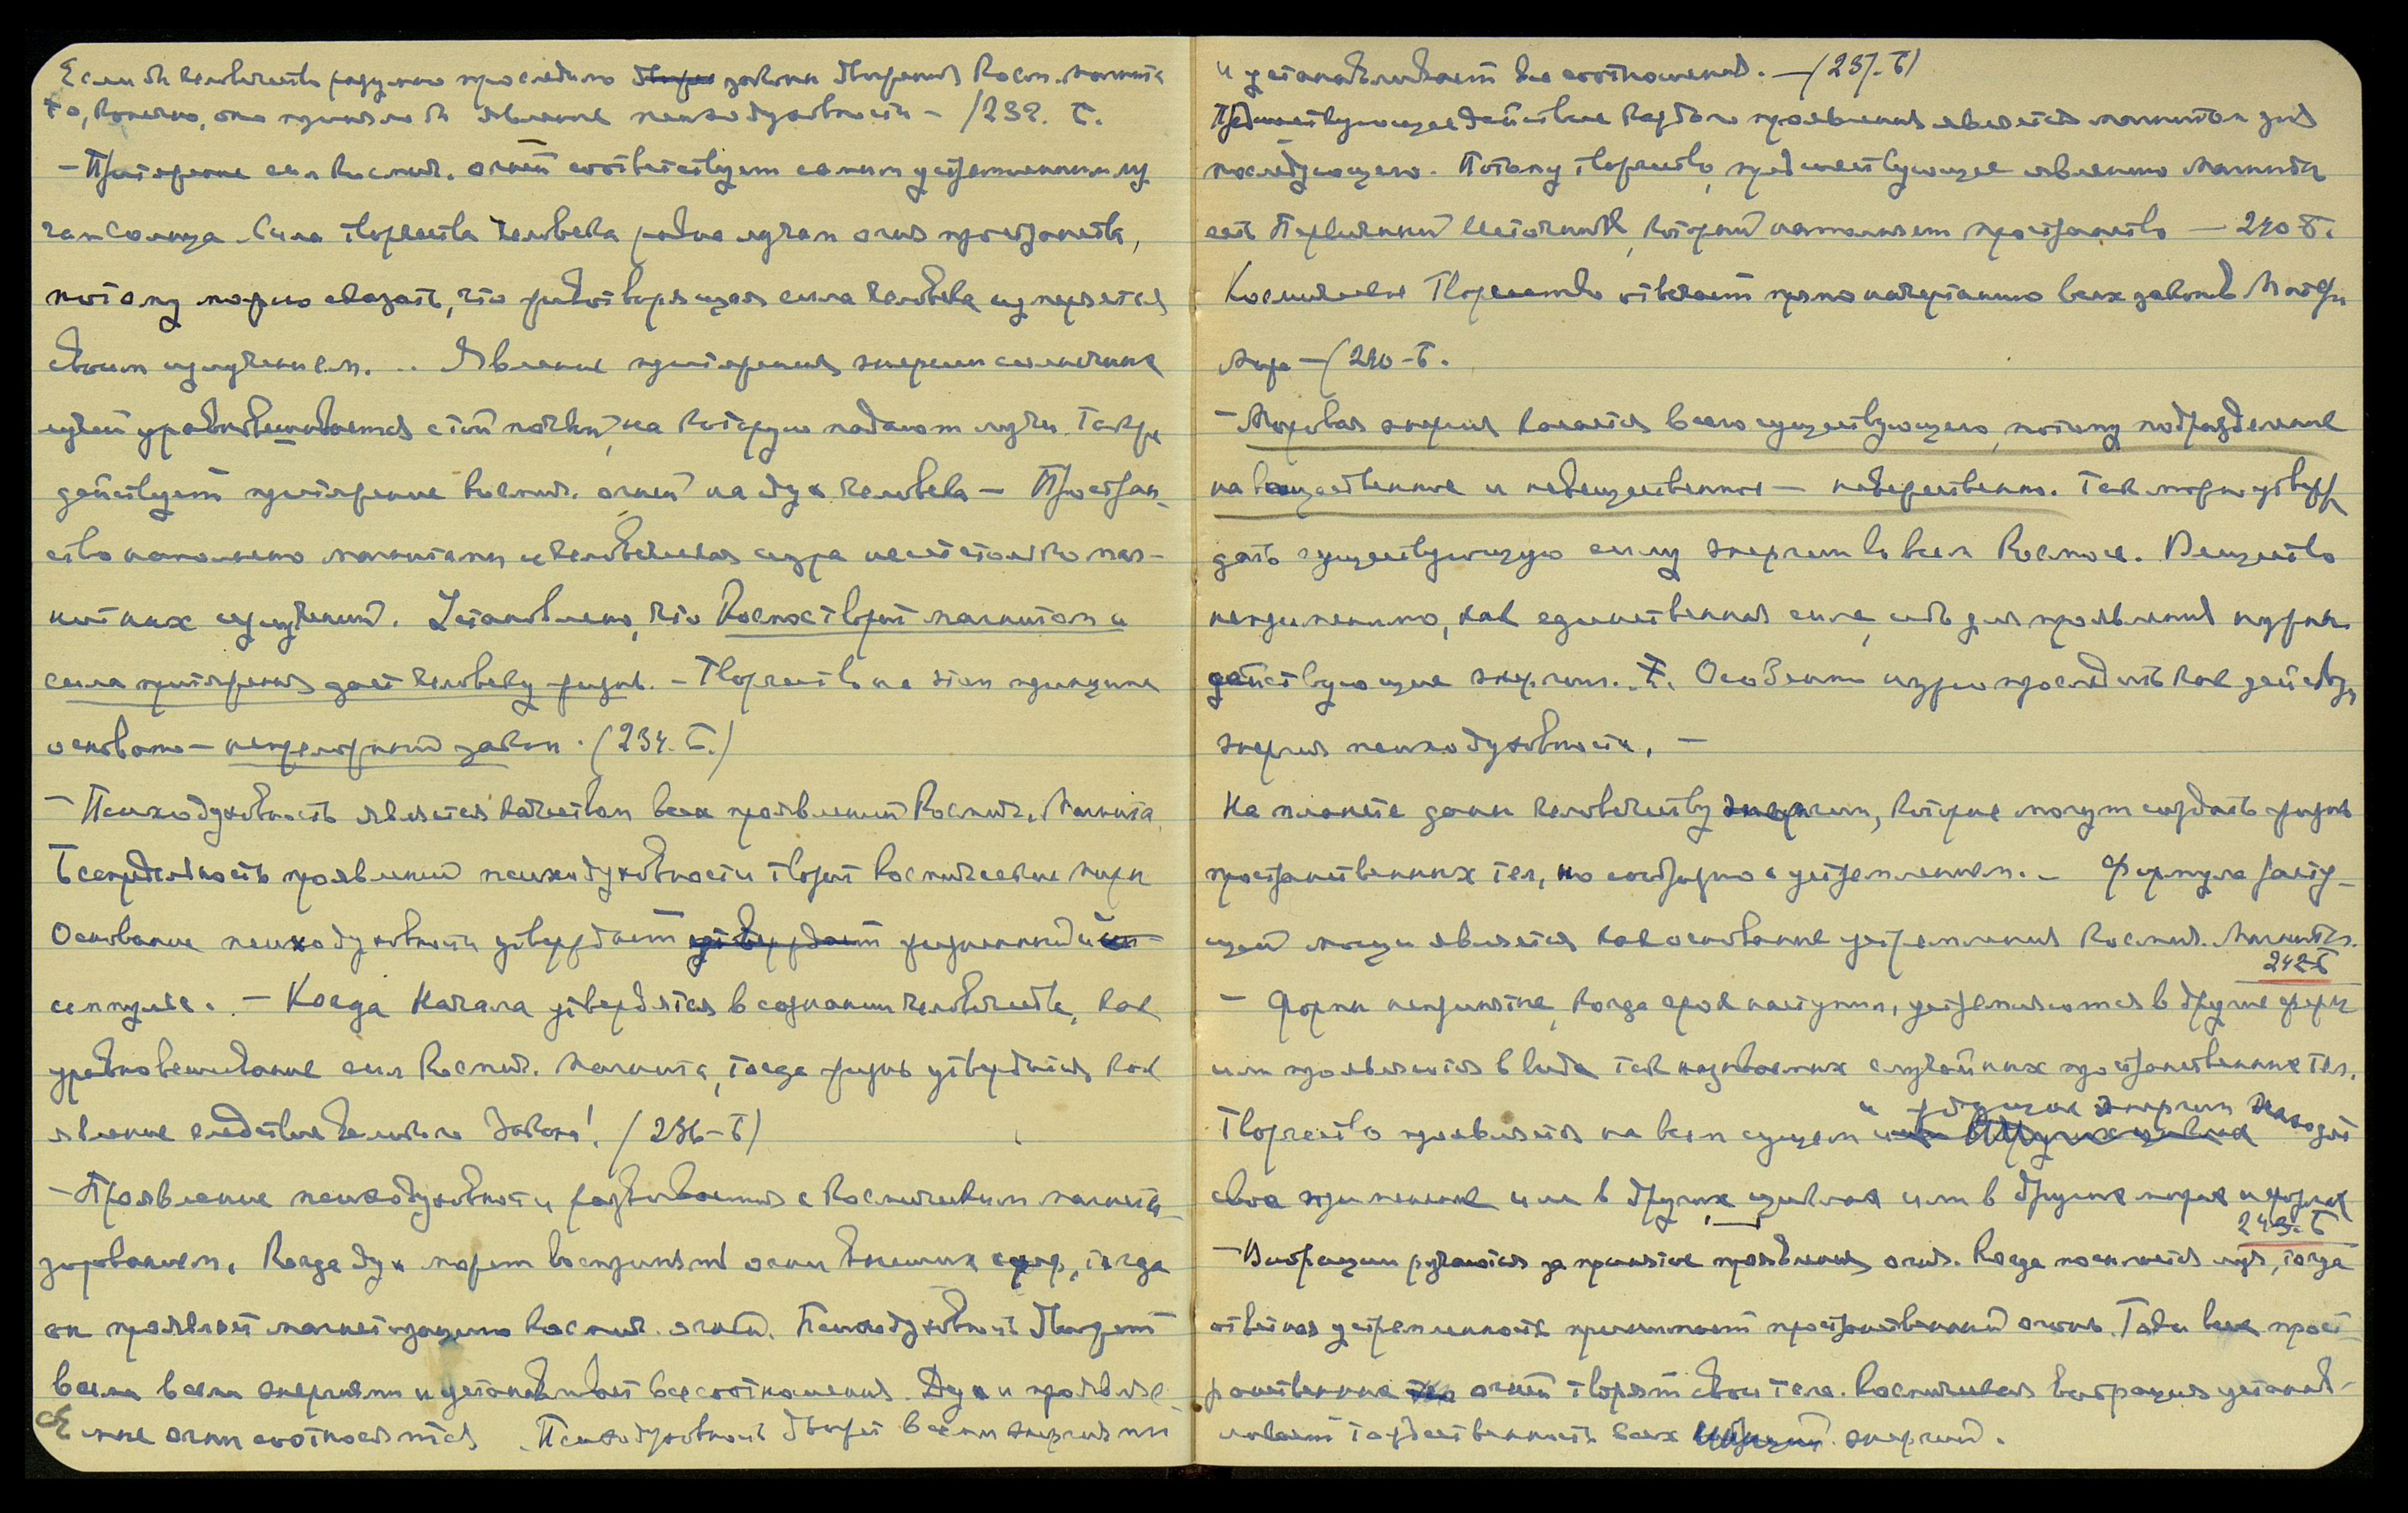 Если бы человечество разумно проследило законы творения Косм. Магнита
то, конечно, оно приняло бы явление психодуховности – /232. Б.
– Притяжение сил космич. огней соответствует самым устремленным лу
чам Солнца. Сила творчества человека равна лучам огня пространства,
потому можно сказать, что животворящая сила человека измеряется
своим излучением. .. Явление притяжения энергии солнечных
лучей уравновешивается с той почвой, на которую падают лучи. Так же
действует притяжение космич. огней на дух человека – Простран-
ство наполнено магнитами и человеческая аура несёт столько маг-
нитных излучений. Установлено, что Космос творит магнитом и
сила притяжения дает человеку жизнь. – Творчество на этом принципе
основано – непреложный закон. (234. Б.)
– Психодуховность является качеством всех проявлений Космич. Магнита.
Беспредельность проявлений психодуховности творит космические миры
Основание психодуховности утверждает утверждает жизненный им-
пульс. – Когда Начала утвердятся в сознании человечества, как
уравновешивание сил Космич. Магнита, тогда жизнь утвердится как
явление следствие Великого Закона! (236–Б)
– Проявление психодуховности развивается с космическим магнети-
зированием. Когда дух может воспринять огни высших сфер, тогда
он проявляет магнетизацию космич. огней. Психодуховность творит
всеми всеми энергиями и устанавливает все соотношения. Дух и проявле-
нные огни соотносятся. Психодуховность творит всеми энергиями
и устанавливает все соотношения. – (237. Б)
Предшествующее действие каждого проявления является магнитом для
последующего. Потому творчество, предшествующее явлению магнита
есть Первичный Источник, который наполняет пространство – 240 Б.
Космическое Творчество отвечает прямо начертанию всех законов Матери
Мира – (240–Б.
– Мировая энергия касается всего существующего, потому подразделение
на вещественное и невещественное – невежественно. Так можно утверж
дать существующую силу энергии во всем Космосе. Вещество
неприменимо, как единственная сила, ибо для проявления нужны
действующие энергии. Особенно нужно проследить как действует
энергия психодуховности. –
На планете даны человечеству энергии, которые могут создать жизнь
пространственных тел, но сообразно с устремлением. – Формула расту-
щей мощи является как основание устремления Космич. Магнита.
242–Б
– Формы непринятые, когда срок наступил, устремляются в другие сферы
или проявляются в виде так называемых случайных пространственных тел.
Творчество проявляется на всем сущем и ждущие энергии находят
свое применение или в других циклах или в других мирах и формах
243. Б
– Вибрации ручаются за принятие проявления огня. Когда посылается луч, тогда
ответная устремленность принимает пространственный огонь. Токи всех прост-
ранственных огней творят свои тела. Космическая вибрация устанав-
ливает тождественность всех энергий.